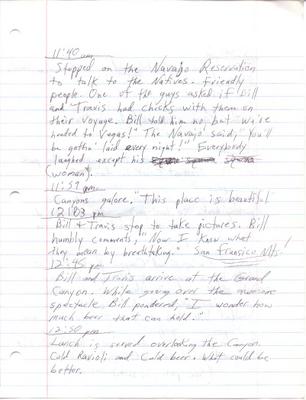 11:40 am
Stopped on the Navajo Reservation
to talk to the Natives. Friendly
people. One of the guys asked if Bill
and Travis had chicks with them on
their voyage. Bill told him no, but "we're
headed to Vegas!" The Navajo said, "You'll
be gotta' laid every night!" Everybody
laughed except his
(woman).
11:57 am
Canyons galore. "This place is beautiful
12:03 pm
Bill & Travis stop to take pictures. Bill
humbly comments, "Now I know what
they mean by breathtaking." San Fransico Mts!
12:45 pm
Bill and Travis arrive at the Grand
Canyon. While gazing over the awesome
spectacle Bill pondered, "I wonder how
much beer that can hold."
12:50 pm
Lunch is served overlooking the Canyon.
Cold Ravioli and Cold beer. What could be
better.